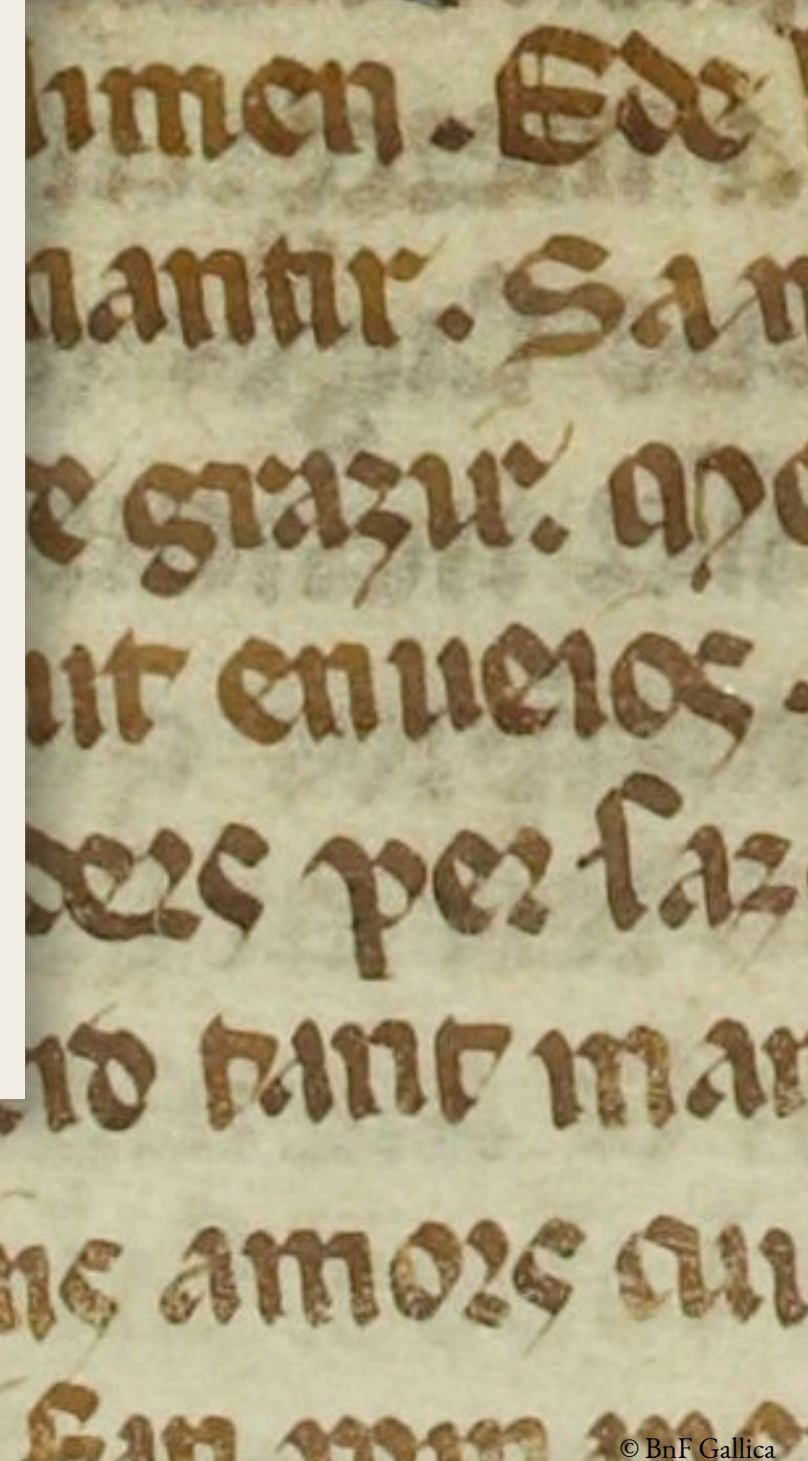 limen . E de
nantir . San
e grazir . aẏo
uit enueios .
ders per faz
nd tant mar
ns amors cui
© BnF Gallica